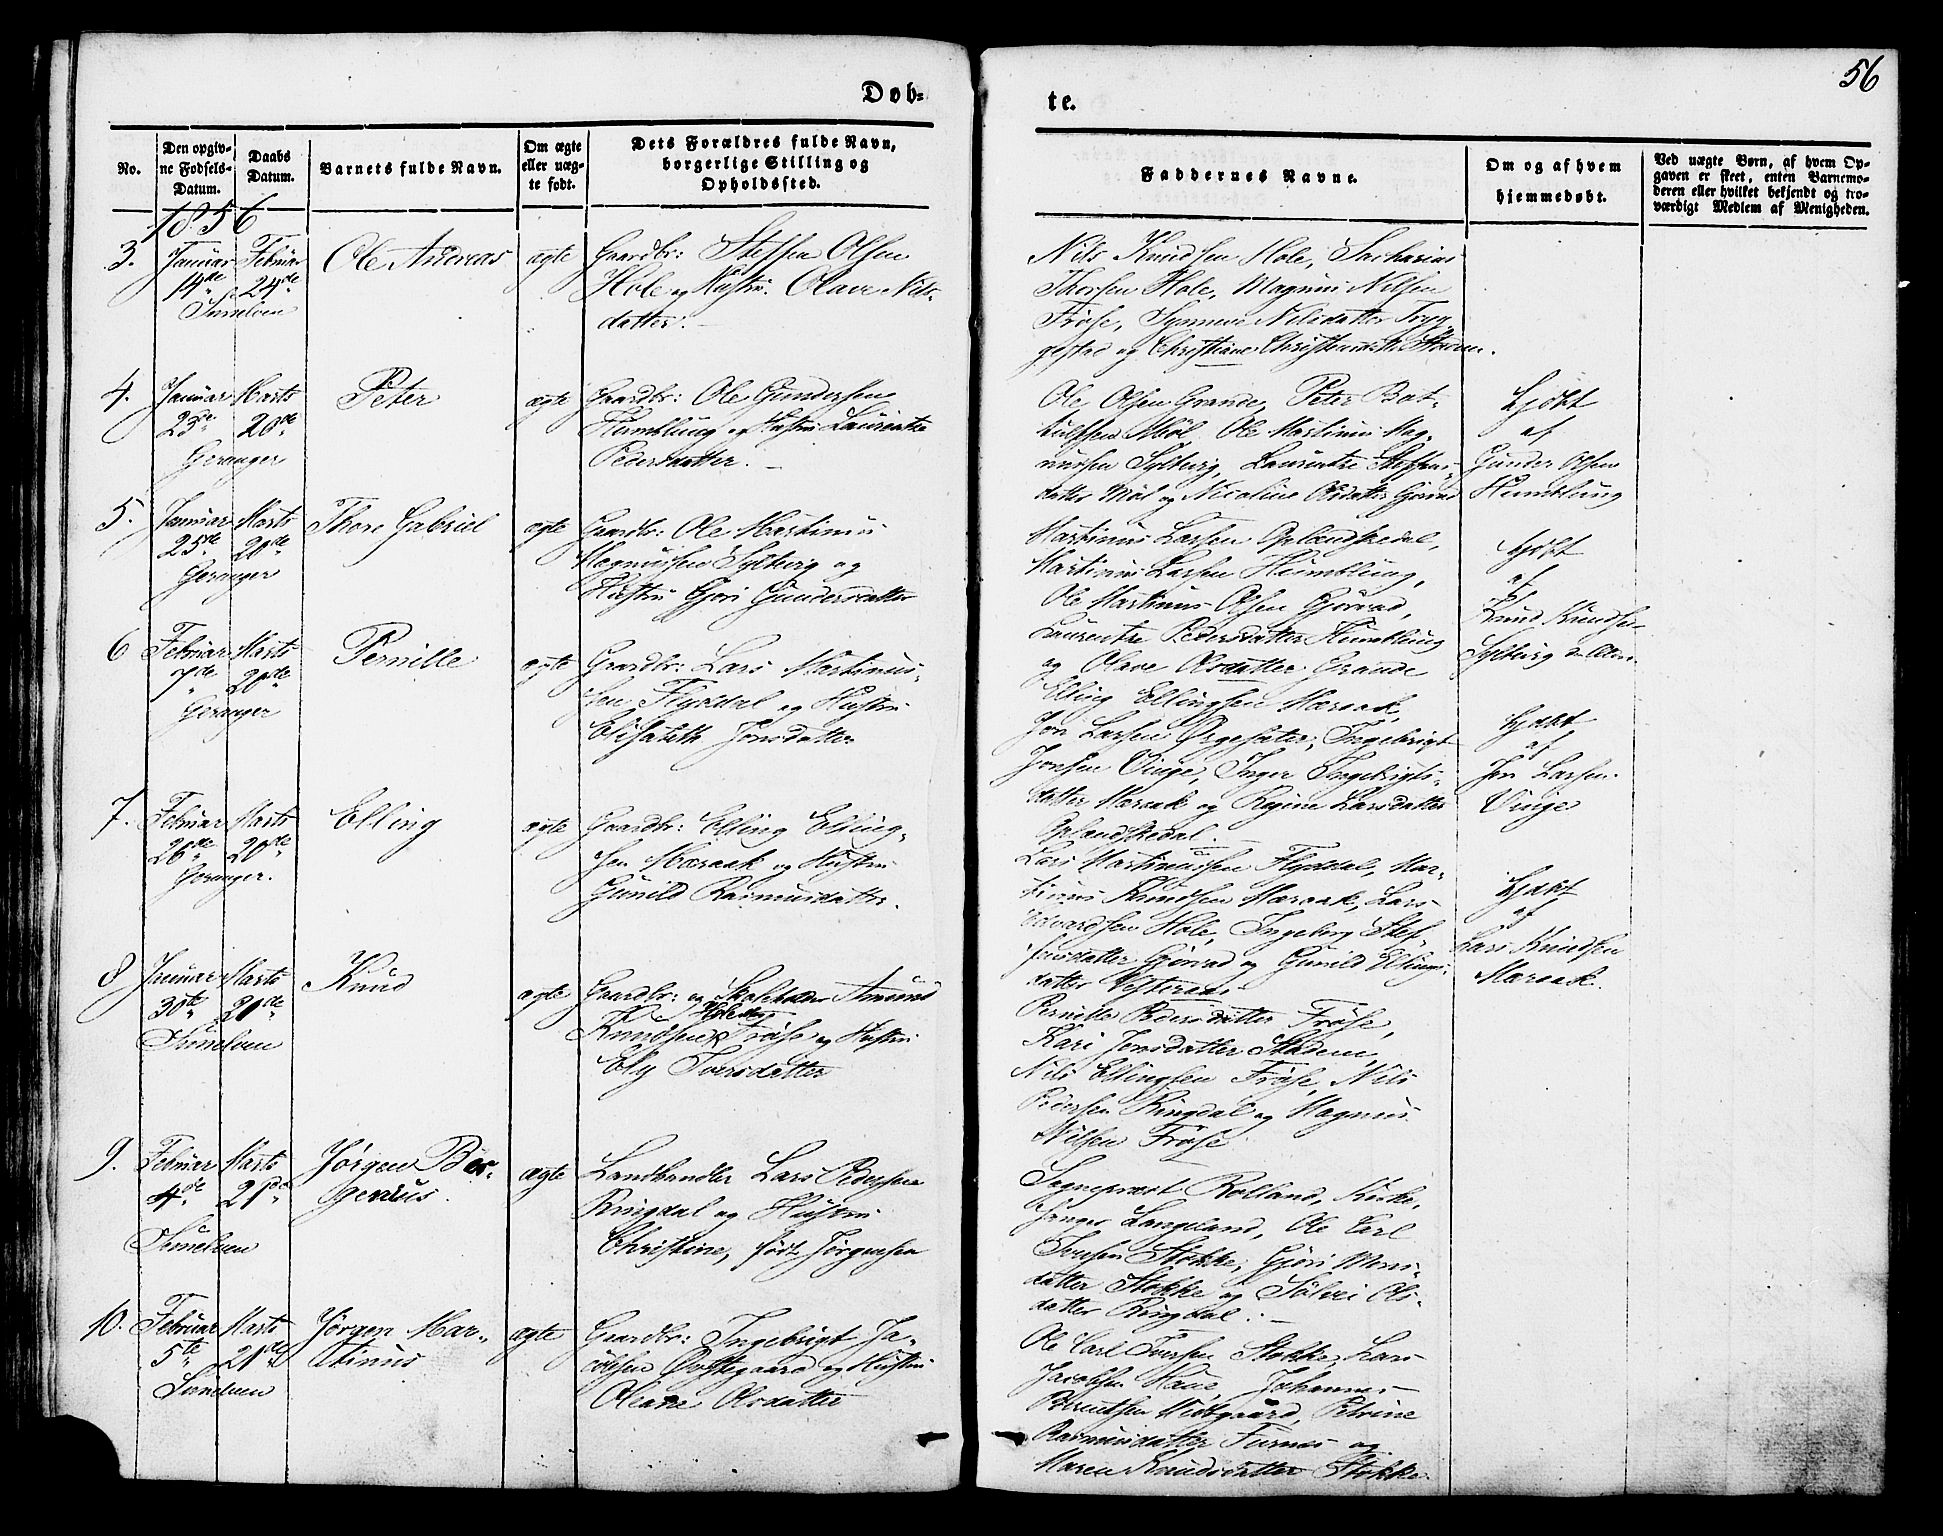 56
Døb-
te.
No.
Den opgiv-
ne Fødsels-
Datum.
Daabs
Datum.
Barnets fulde Navn.
Om ægte
eller uæg-
te født.
Dets Forældres fulde Navn,
borgerlige Stilling og
Opholdssted.
Faddernes Navne.
Om og af hvem
hjemmedøbt.
Ved uægte Børn, af hvem Op-
gaven er skeet, enten Barnemo-
deren eller hvilket bekjendt og tro-
værdigt Medlem af Menigheden.
1856
3.
Januar
14de
Sunelven
Februar
24de
Ole Andreas
ægte
Gaardbr: Steffen Olsen
Hole og Hustru Olave Nils-
datter.
Nils Knudsen Hole, Sacharias
Thorsen Hole, Magnus Nilsen
Frøse, Synneve Nilsdatter Tryg
gestad og Christiane
4.
Januar
23de
Geranger
Marts
20de
Peter
ægte
Gaardbr: Ole Gundersen
Humblung og Hustru Laurentze
Pedersdatter.
Ole Olsen Grande, Peter Bot-
tulfsen Møl, Ole Martinus Mag-
nussen Sylburg, Laurentze Steffens-
datter Møl og Nicoline Olsdatter Gjørvad
Hjdbt
af
Gunder Olsen
Humblung
5.
Januar
25de
Geranger
Marts
20de
Thore Gabriel
ægte
Gaardbr: Ole Martinus
Magnussen Sylburg og
Hustru Gjøri Gundersdatter
Martinus Larsen Oplandskedal,
Martinus Larsen Humblung,
Ole Martinus Olsen Gjørvad,
Laurentze Pedersdatter Humblung
og Olave Olsdatter Grande
Hjdbt
af
Knud Knudsen
Sylburg
6
Februar
7de
Geranger
Marts
20de
Pernille
ægte
Gaardbr: Lars Martinus-
sen Flyddal og Hustru
Elisabeth Jonsdatter
Elling Ellingsen Maraak,
Jon Larsen Ørgesæter, Ingebrigt
Jonsen Vinge, Inger Ingebrigts-
datter Maraak og Regine Larsdatter
Oplandskedal.
Hjdbt
af
Jon Larsen
Vinge
7.
Februar
26de
Geranger.
Marts
20de
Elling
ægte
Gaardbr: Elling Elling-
sen Maraak og Hustru
Gunild Rasmusdatter.
Lars Martinussen Flyddal, Mar-
tinus Knudsen Maraak, Lars
Edvardsen Hole, Ingeborg Stef-
fensdatter Gjørvad og Gunild Ellings-
datter Vesteraas
Hjdbt
af
Lars Knudsen
Maraak.
8
Januar
30te
Sunelven
Marts
21de
Knud
ægte
Gaardbr: og Skoleholder Amund
Knudsen Frøse og Hustru
Ely Iversdatter
Pernille Pedersdatter Frøse,
Kari Jonsdatter Stadem,
Nils Ellingsen Frøse, Nils
Pedersen Ringdal og Magnus
Nilsen Frøse
9.
Februar
4de
Sunelven
Marts
21de
Jørgen Ber-
genius.
ægte
Landhandler Lars Pedersen
Ringdal og Hustru
Christine, født Jørgensen
Sognepræst Rolland, Kirke-
sanger Langeland, Ole Carl
Iversen Stokke, Gjøri Mons-
datter Stokke og Sølvei Ols-
datter Ringdal.
10.
Februar
5te
Sunelven
Marts
21de
Jørgen Mar-
tinus
ægte
Gaardbr: Ingebrigt Ja-
cobsen Øvstegaard og Hustru
Oleane Olsdatter
Ole Carl Iversen Stokke, Lars
Jacobsen Haug, Johannes
Berntsen Midtgaard, Petrine
Rasmusdatter Furnes og
Maren Knudsdatter Stokke